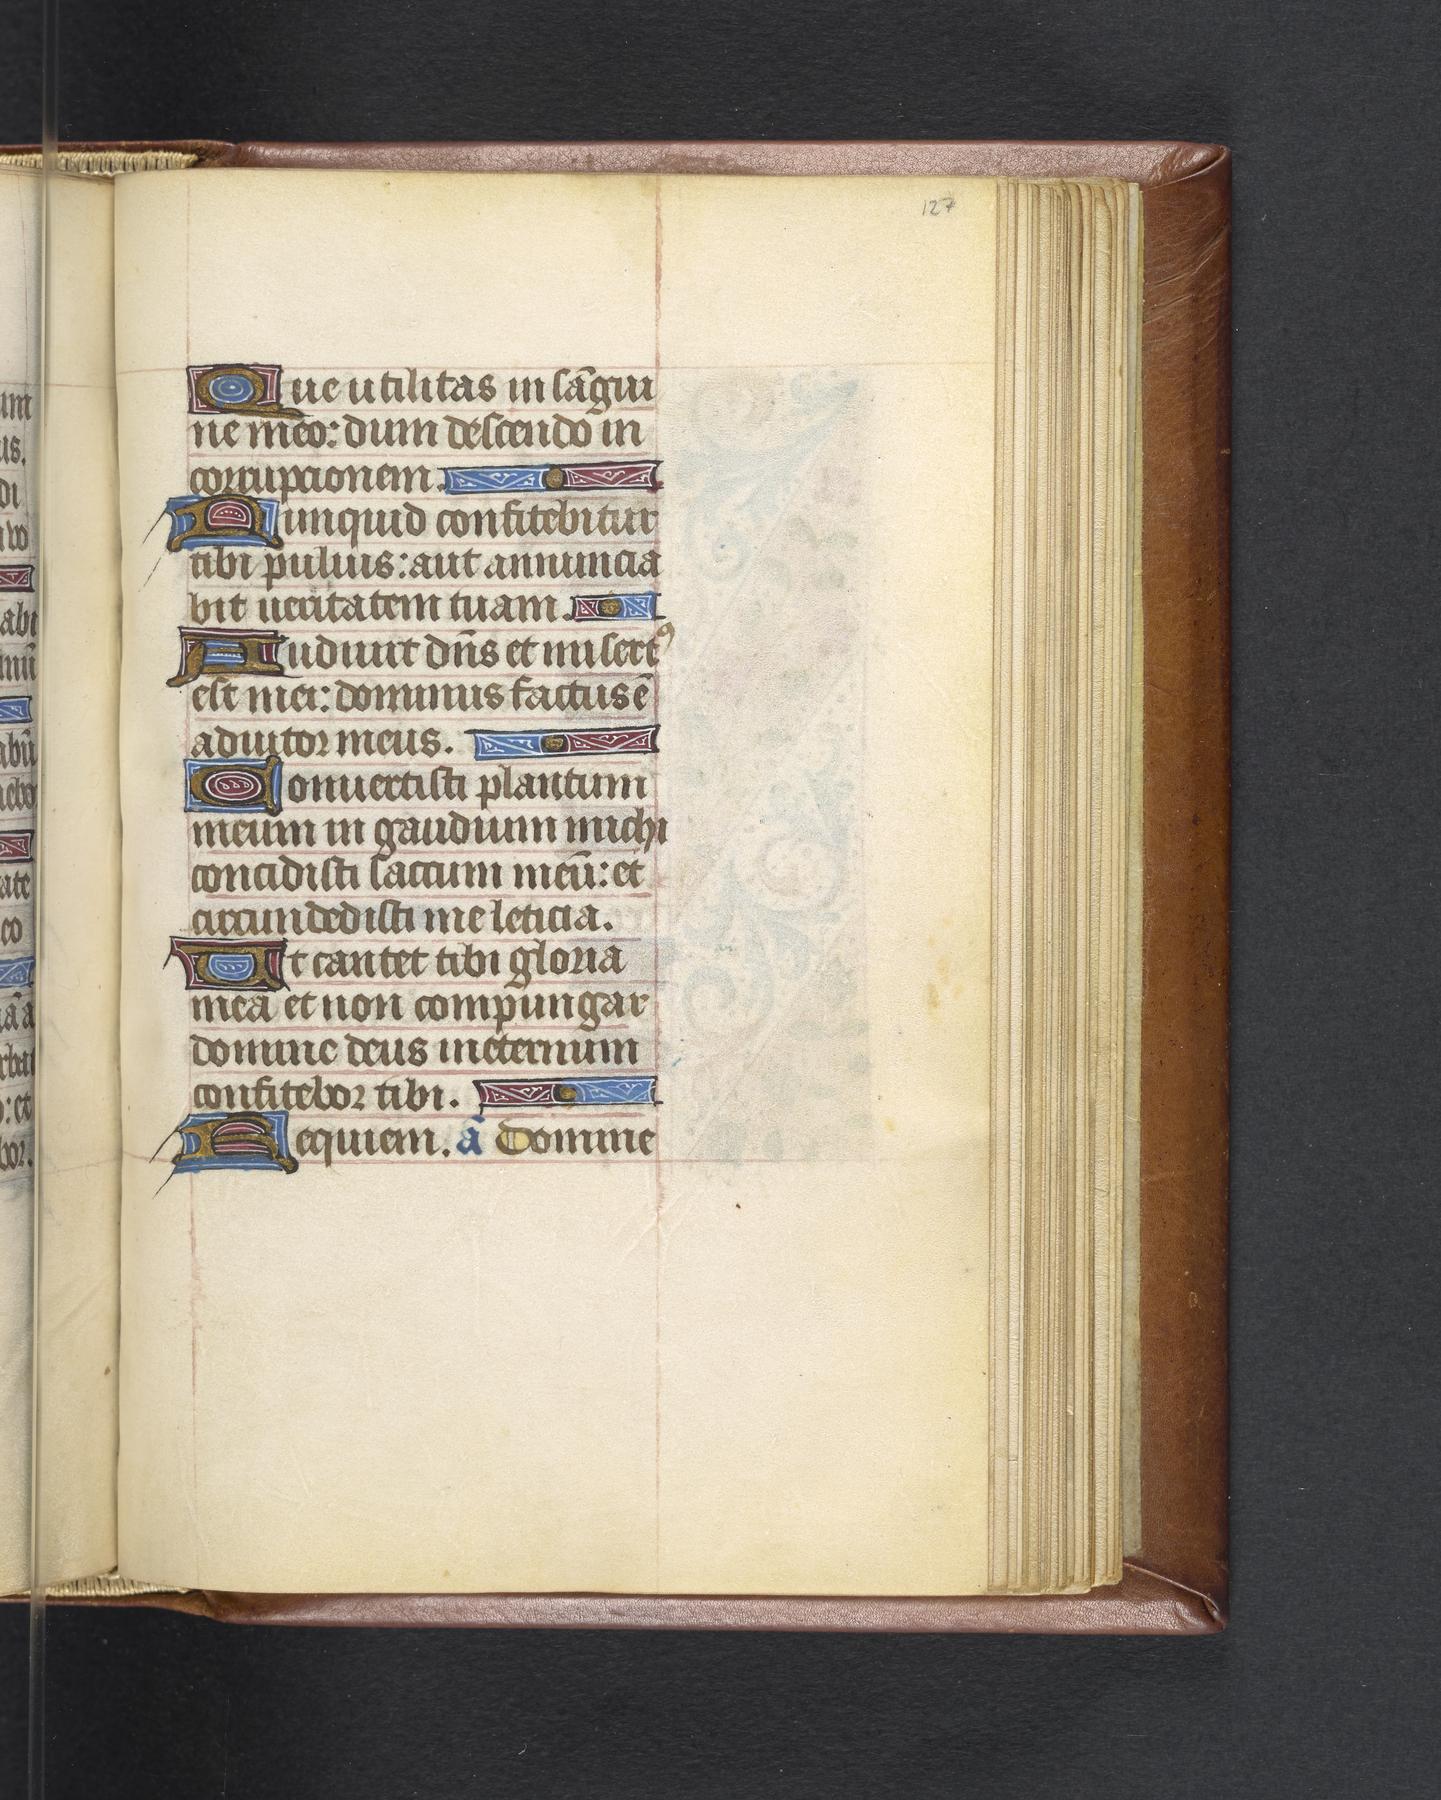 127
Que utilitas in sãgui
ne meo: dum descendo in
corrupcionem.
Nunquid confitebitur
tibi puluis: aut annuncia
bit ueritatem tuam.
Audiuit dñs et misertꝰ
est mei: dominus factus ē
adiutor meus.
Conuertisti planctum
meum in gaudium michi
concidisti saccum meū: et
circundedisti me leticia.
Ut cantet tibi gloria
mea et non compungar
domine deus in eternum
confitebor tibi.
Requiem. ã Domine